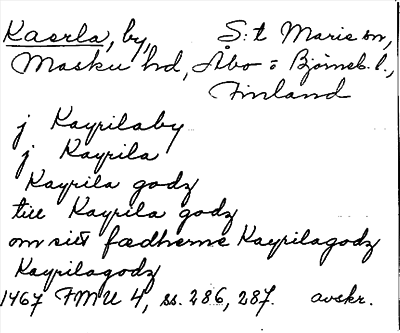 Kaerla, by, S:t Marie sn,
Masku hd, Åbo o Björneb. l.,
Finland
j Kayrilaby
j Kayrila
Kayrila godz
till Kayrila godz
om sitt fædherne Kayrilagodz
Kayrilagodz
1467 FMU 4, ss. 286, 287. avskr.